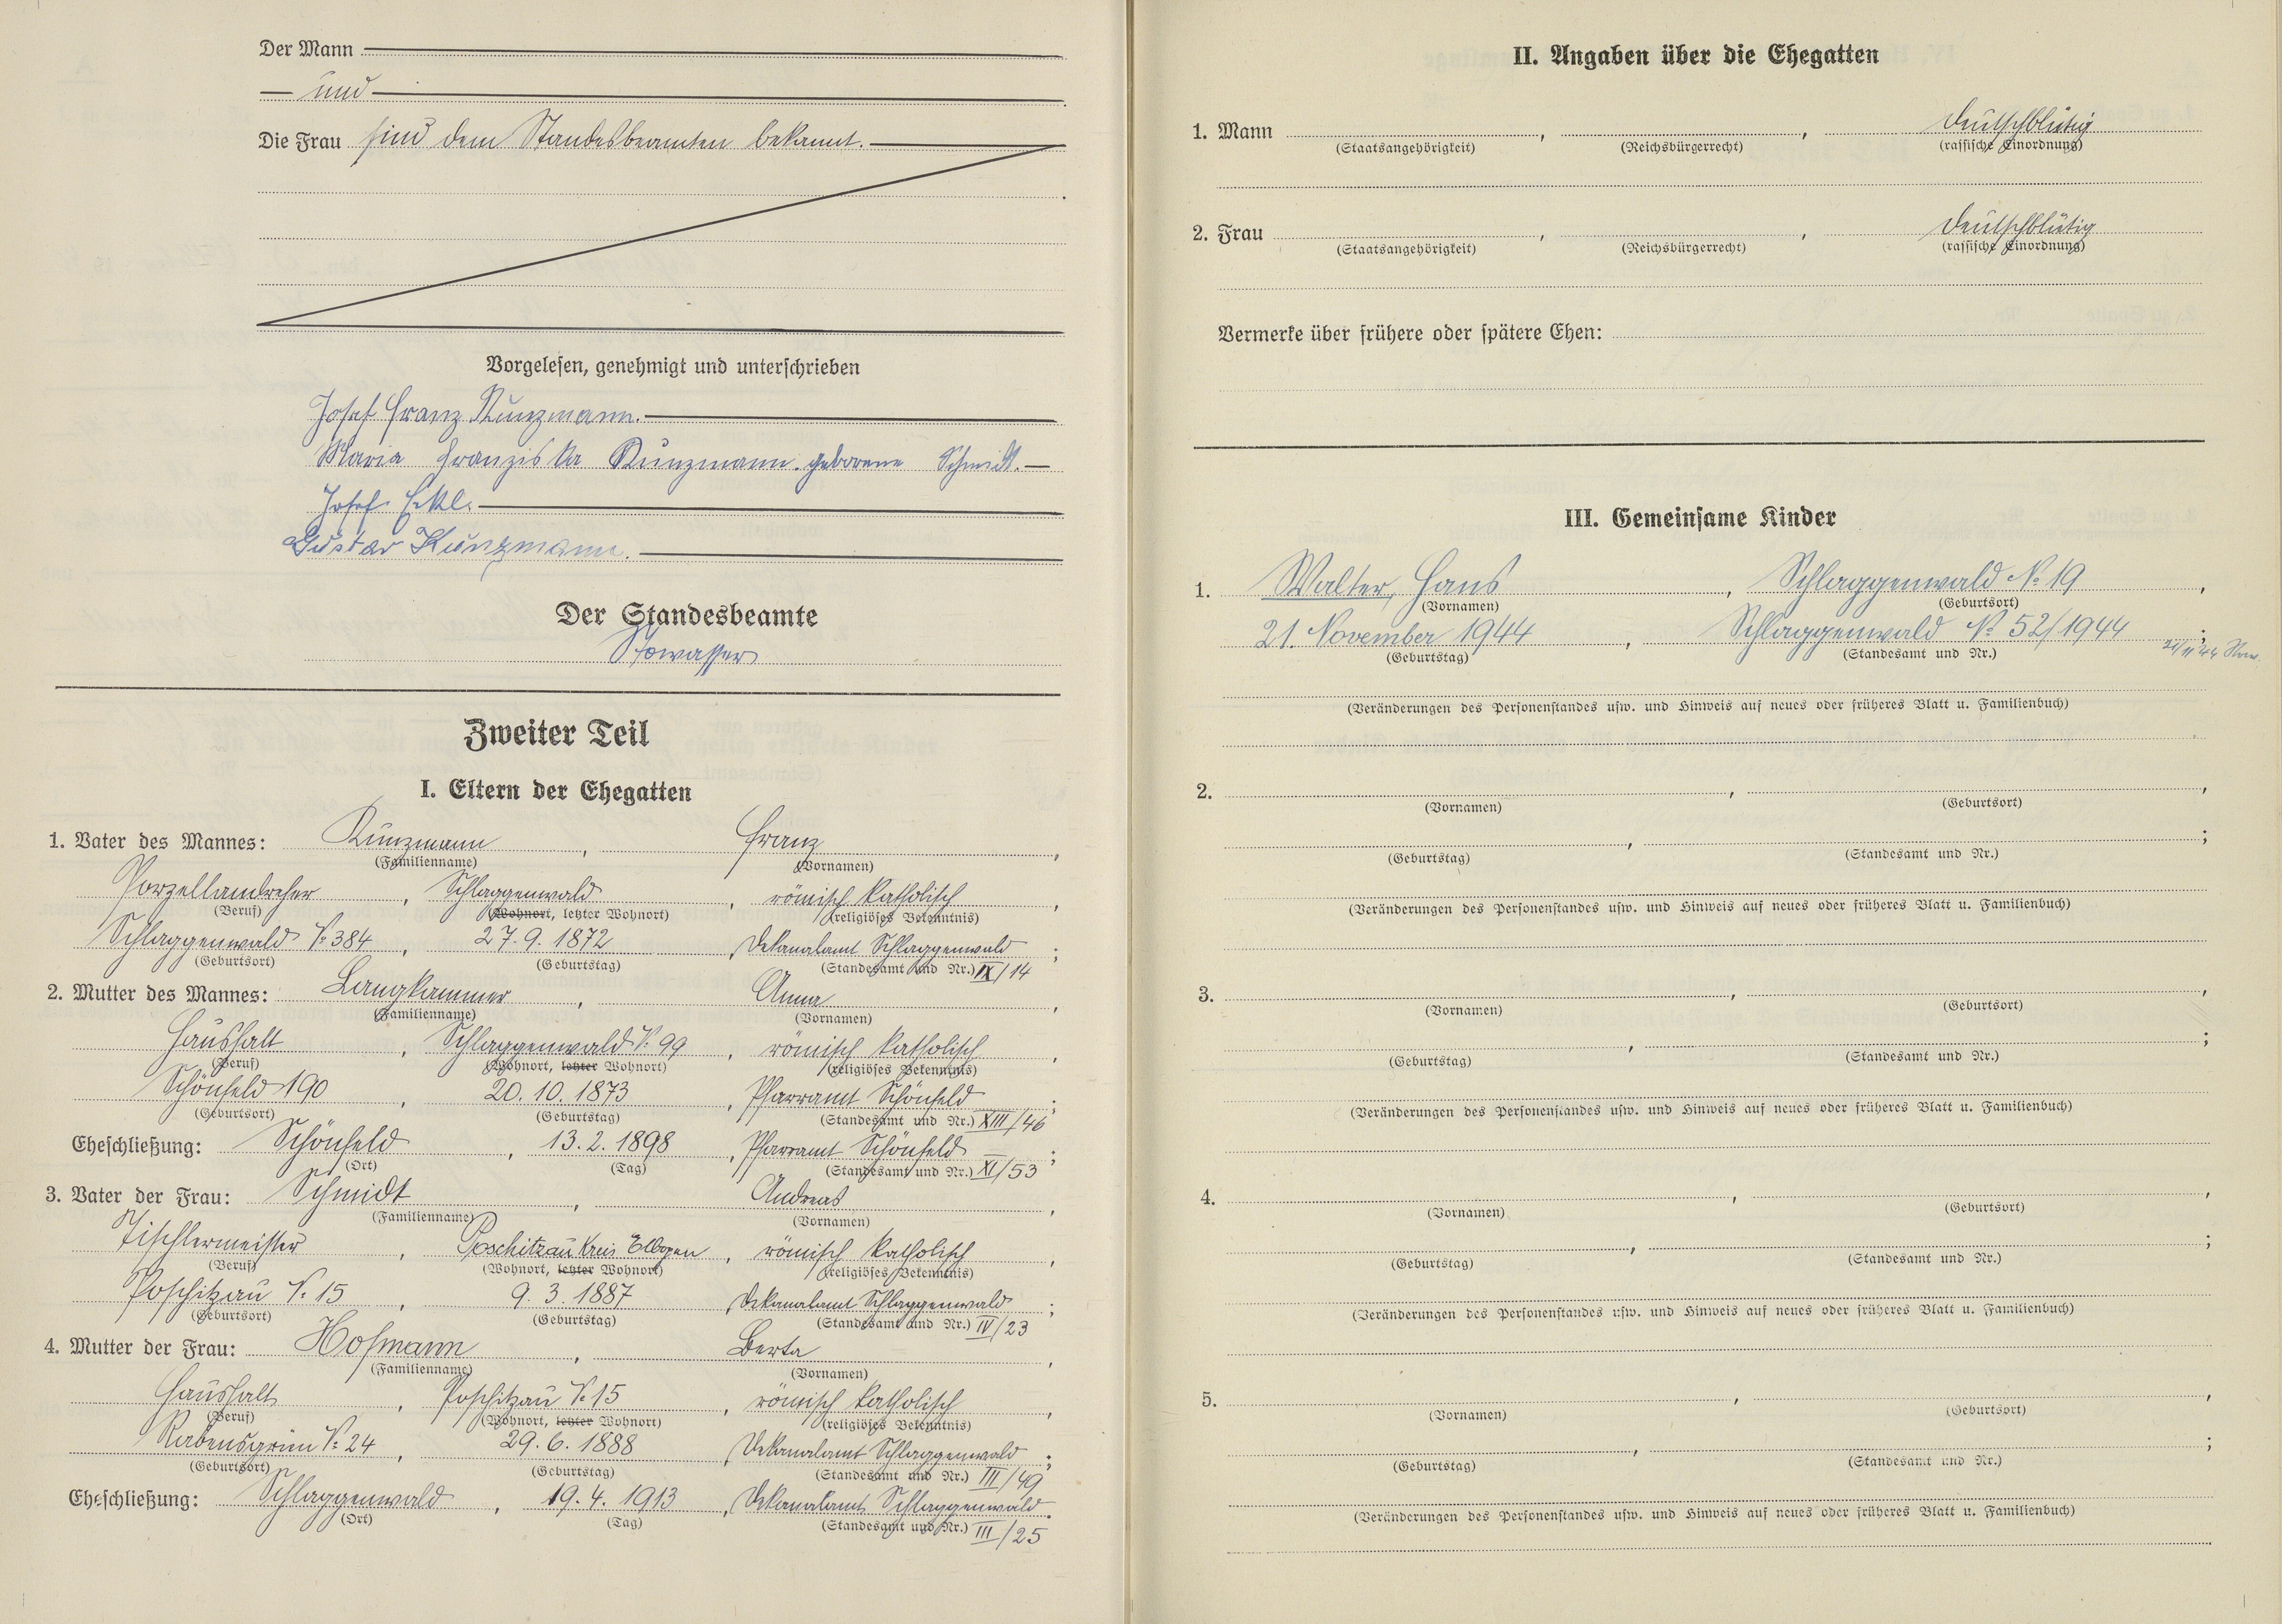 Der Mann
und
Die Frau sind dem Standesbeamten bekannt.
Vorgelesen, genehmigt und unterschrieben
Josef Franz Kunzmann.
Maria Franziska Kunzmann geborene Schmidt.
Josef Eckl.
Gustav Kunzmann.
Der Standesbeamte
Stowasser
Zweiter Teil
I. Eltern der Ehegatten
1. Vater des Mannes: Kunzmann, Franz,
(Familienname) (Vornamen)
Porzellandreher, Schlaggenwald, römisch katholisch,
(Beruf) (Wohnort, letzter Wohnort) (religiöses Bekenntnis)
Schlaggenwald № 384, 27.9.1872, Dekanalamt Schlaggenwald;
(Geburtsort) (Geburtstag) (Standesamt und Nr.) IX/14
2. Mutter des Mannes: Langhammer, Anna,
(Familienname) (Vornamen)
Haushalt, Schlaggenwald № 99, römisch katholisch,
(Beruf) (Wohnort, letzter Wohnort) (religiöses Bekenntnis)
Schönfeld 190, 20.10.1873, Pfarramt Schönfeld;
(Geburtsort) (Geburtstag) (Standesamt und Nr.) XIII/46
Eheschließung: Schönfeld, 13.2.1898, Pfarramt Schönfeld;
(Ort) (Tag) (Standesamt und Nr.) XI/53
3. Vater der Frau: Schmidt, Andreas,
(Familienname) (Vornamen)
Tischlermeister, Poschitzau Kreis Elbogen, römisch katholisch,
(Beruf) (Wohnort, letzter Wohnort) (religiöses Bekenntnis)
Poschitzau № 15, 9.3.1887 Dekanalamt Schlaggenwald;
(Geburtsort) (Geburtstag) (Standesamt und Nr.) IV/23
4. Mutter der Frau: Hofmann, Berta,
(Familienname) (Vornamen)
Haushalt, Poschitzau № 15, römisch katholisch,
(Beruf) (Wohnort, letzter Wohnort) (religiöses Bekenntnis)
Rabensgrün № 24, 29.6.1888 Dekanalamt Schlaggenwald;
(Geburtsort) (Geburtstag) (Standesamt und Nr.) III/49
Eheschließung: Schlaggenwald, 19.4.1913, Dekanalamt Schlaggenwald.
(Ort) (Tag) (Standesamt und Nr.) III/25
II. Angaben über die Ehegatten
1. Mann, , deutschblütig
(Staatsangehörigkeit) (Reichsbürgerrecht) (rassische Einordnung)
2. Frau, , deutschblütig
(Staatsangehörigkeit) (Reichsbürgerrecht) (rassische Einordnung)
Vermerke über frühere oder spätere Ehen:
III. Gemeinsame Kinder
1. Walter, Hans, Schlaggenwald № 19,
(Vornamen) (Geburtsort)
21. November 1944, Schlaggenwald № 52/1944;
(Geburtstag) (Standesamt und Nr.)
(Veränderungen des Personenstandes usw. und Hinweis auf neues oder früheres Blatt u. Familienbuch)
2. , ,
(Vornamen) (Geburtsort)
, ;
(Geburtstag) (Standesamt und Nr.)
(Veränderungen des Personenstandes usw. und Hinweis auf neues oder früheres Blatt u. Familienbuch)
3. , ,
(Vornamen) (Geburtsort)
, ;
(Geburtstag) (Standesamt und Nr.)
(Veränderungen des Personenstandes usw. und Hinweis auf neues oder früheres Blatt u. Familienbuch)
4. , ,
(Vornamen) (Geburtsort)
, ;
(Geburtstag) (Standesamt und Nr.)
(Veränderungen des Personenstandes usw. und Hinweis auf neues oder früheres Blatt u. Familienbuch)
5. , ,
(Vornamen) (Geburtsort)
, ;
(Geburtstag) (Standesamt und Nr.)
(Veränderungen des Personenstandes usw. und Hinweis auf neues oder früheres Blatt u. Familienbuch)